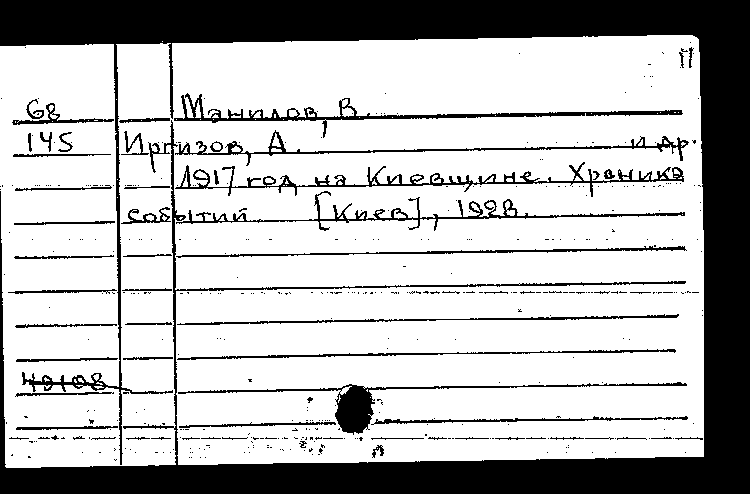 П
68 Манилов, В.
145 Иргизов, А. и др.
1917 год на Киевщине. Хроника
событий [Киев], 1928.
49108